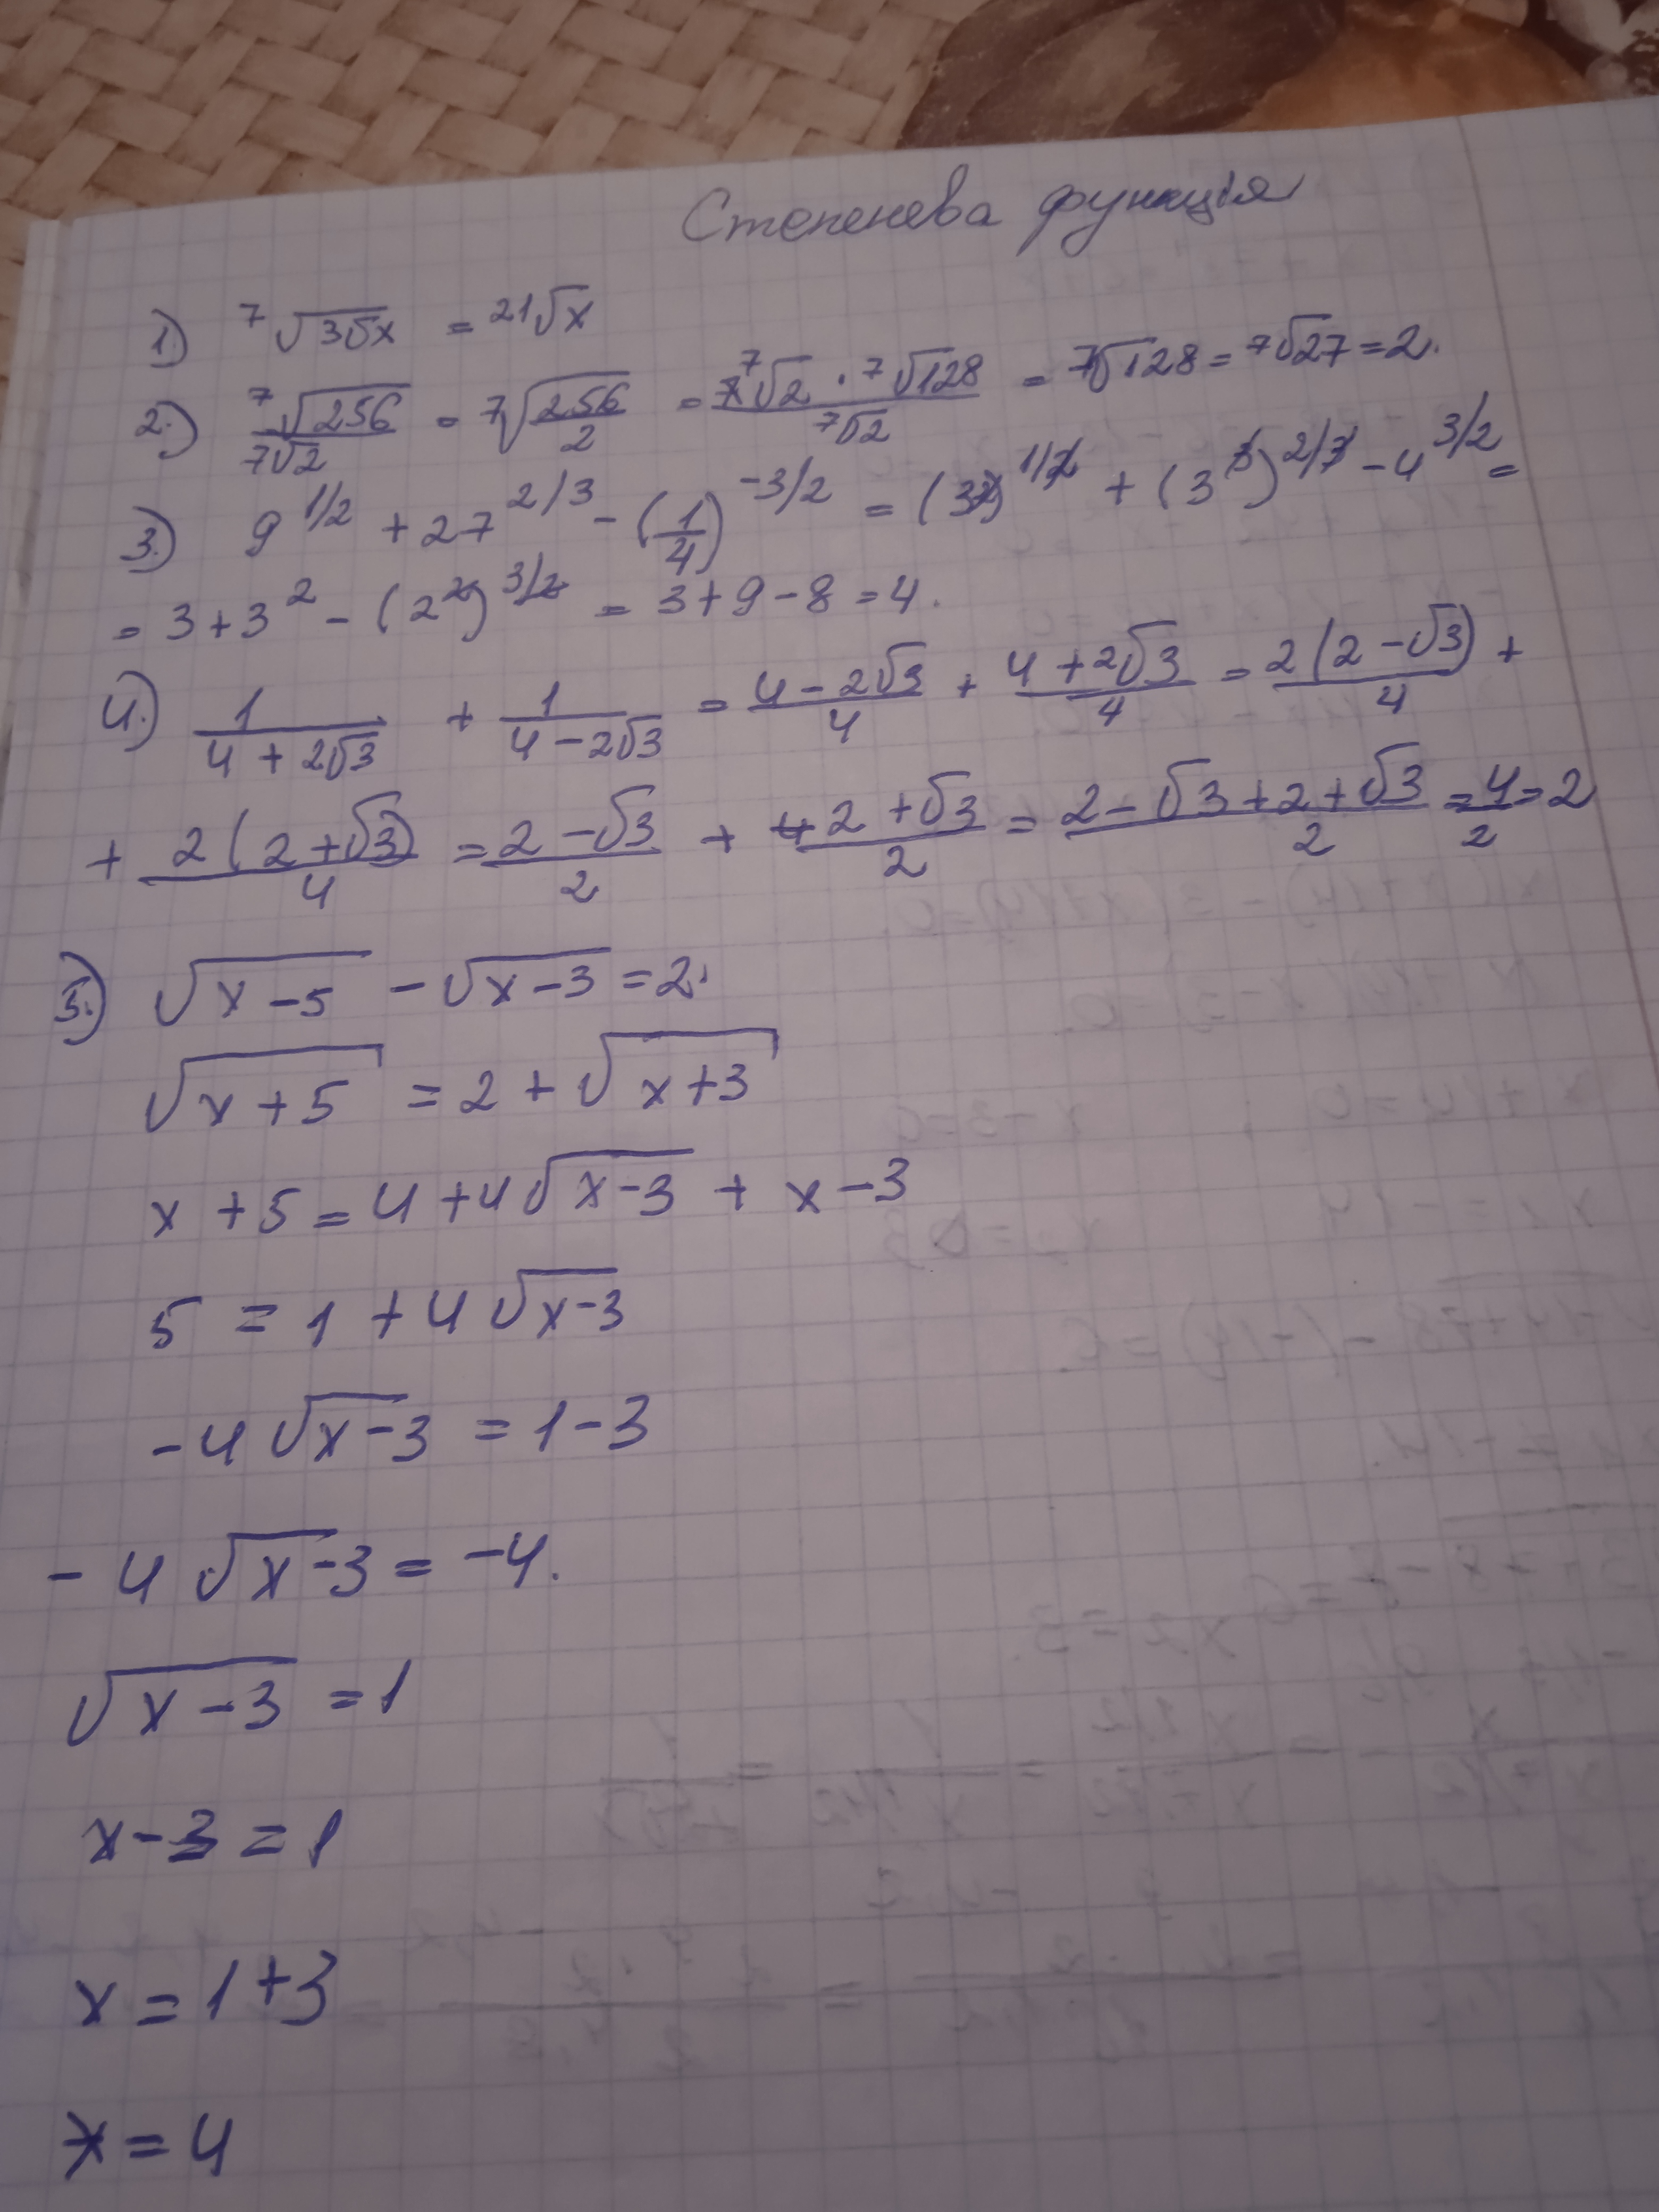 Степенева функція
1.) ⁷√3√x = ²¹√x
2.) ⁷√256 / 7√2 = 7√(256/2) = ⁷√2 · ⁷√128 / ⁷√2 = ⁷√128 = ⁷√27 = 2.
3.) 9^1/2 + 27^2/3 - (1/4)^-3/2 = (3²)^1/2 + (3³)^2/3 - 4^3/2 =
= 3 + 3² - (2²)^3/2 = 3 + 9 - 8 = 4.
4.) 1/(4 + 2√3) + 1/(4 - 2√3) = (4 - 2√3)/4 + (4 + 2√3)/4 = 2(2 - √3)/4 +
+ 2(2 + √3)/4 = (2 - √3)/2 + (2 + √3)/2 = (2 - √3 + 2 + √3)/2 = 4/2 = 2
5.) √(x - 5) - √(x - 3) = 2.
√(x + 5) = 2 + √(x + 3)
x + 5 = 4 + 4√(x - 3) + x - 3
5 = 1 + 4√(x - 3)
- 4√(x - 3) = 1 - 3
- 4√(x - 3) = -4.
√(x - 3) = 1
x - 3 = 1
x = 1 + 3
x = 4